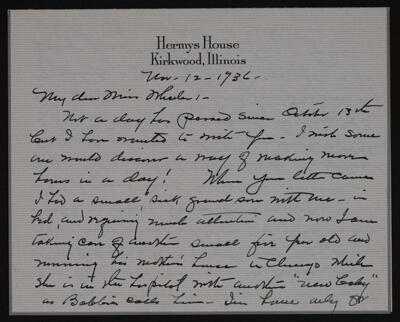 Hermys House
Kirkwood, Illinois
Nov - 12 - 1936 -
My dear Miss Wheeler: -
Not a day has passed since October 13th
but I have wanted to write you - I wish some
one would discover a way of making more
hours in a day! When your letter came
I had a small, sick grandson with me - in
bed, and requiring much attention and now I am
taking care of another small five year old and
running his mother's house in Chicago while
she is in the hospital with another "new baby"
as Bobbie calls him - I'm home only